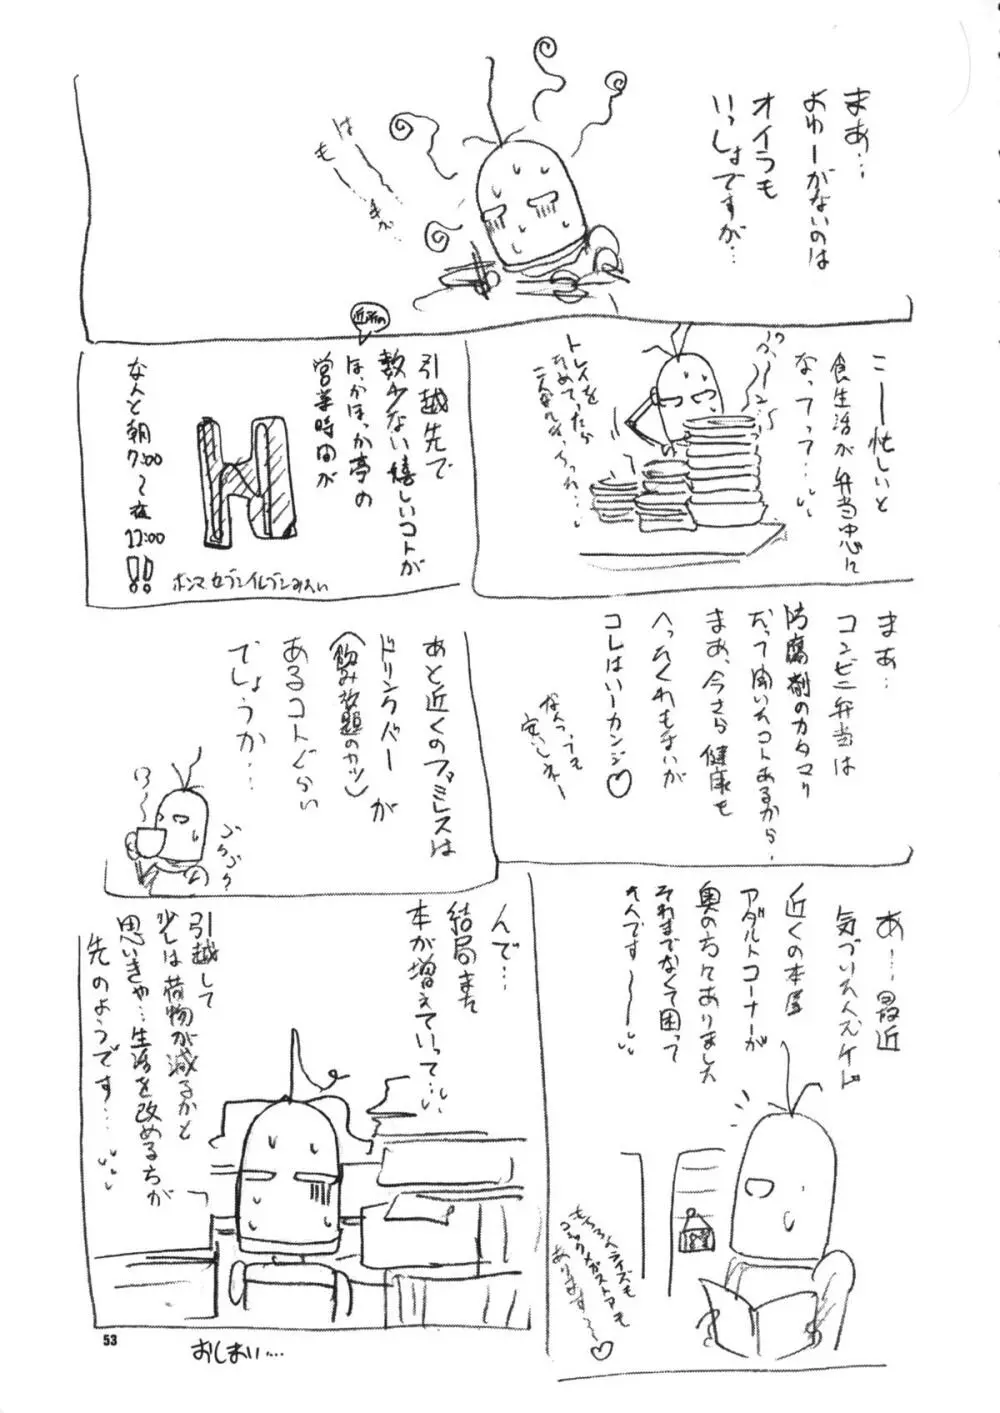 まあ…
よゆーがないのは
オイラも
いっしょですが…
は〜
も〜
こー忙しいと
食生活が弁当中心に
なってって…
トレイを
ためてったら
引越先で
数少ない嬉しいコトが
近所の
ほっかほっか亭の
営業時間が
H
なんと朝
7:00
〜夜
23:00
!!
ホンマセブンイレブンみたい
まあ…
コンビニ弁当は
防腐剤のカタマリ
だって聞いたコトあるから、
まあ、今さら健康も
へったくれもないが
コレはいーカンジ♡
なんつっても
安いしネー
あと近くのファミレスは
ドリンクバーが
(飲み放題のヤツ)
あるコトぐらい
でしょうか…
あ…最近
気づいたんスケド
近くの本屋
アダルトコーナーが
奥の方にありました
それまでなくて困って
たんです〜
コミックメガストアも
あります〜♡
んで…
結局また
本が増えていって…
引越して
少しは荷物が減るかと
思いきゃ…生活を改める方が
先のようです…
53
おしまい…